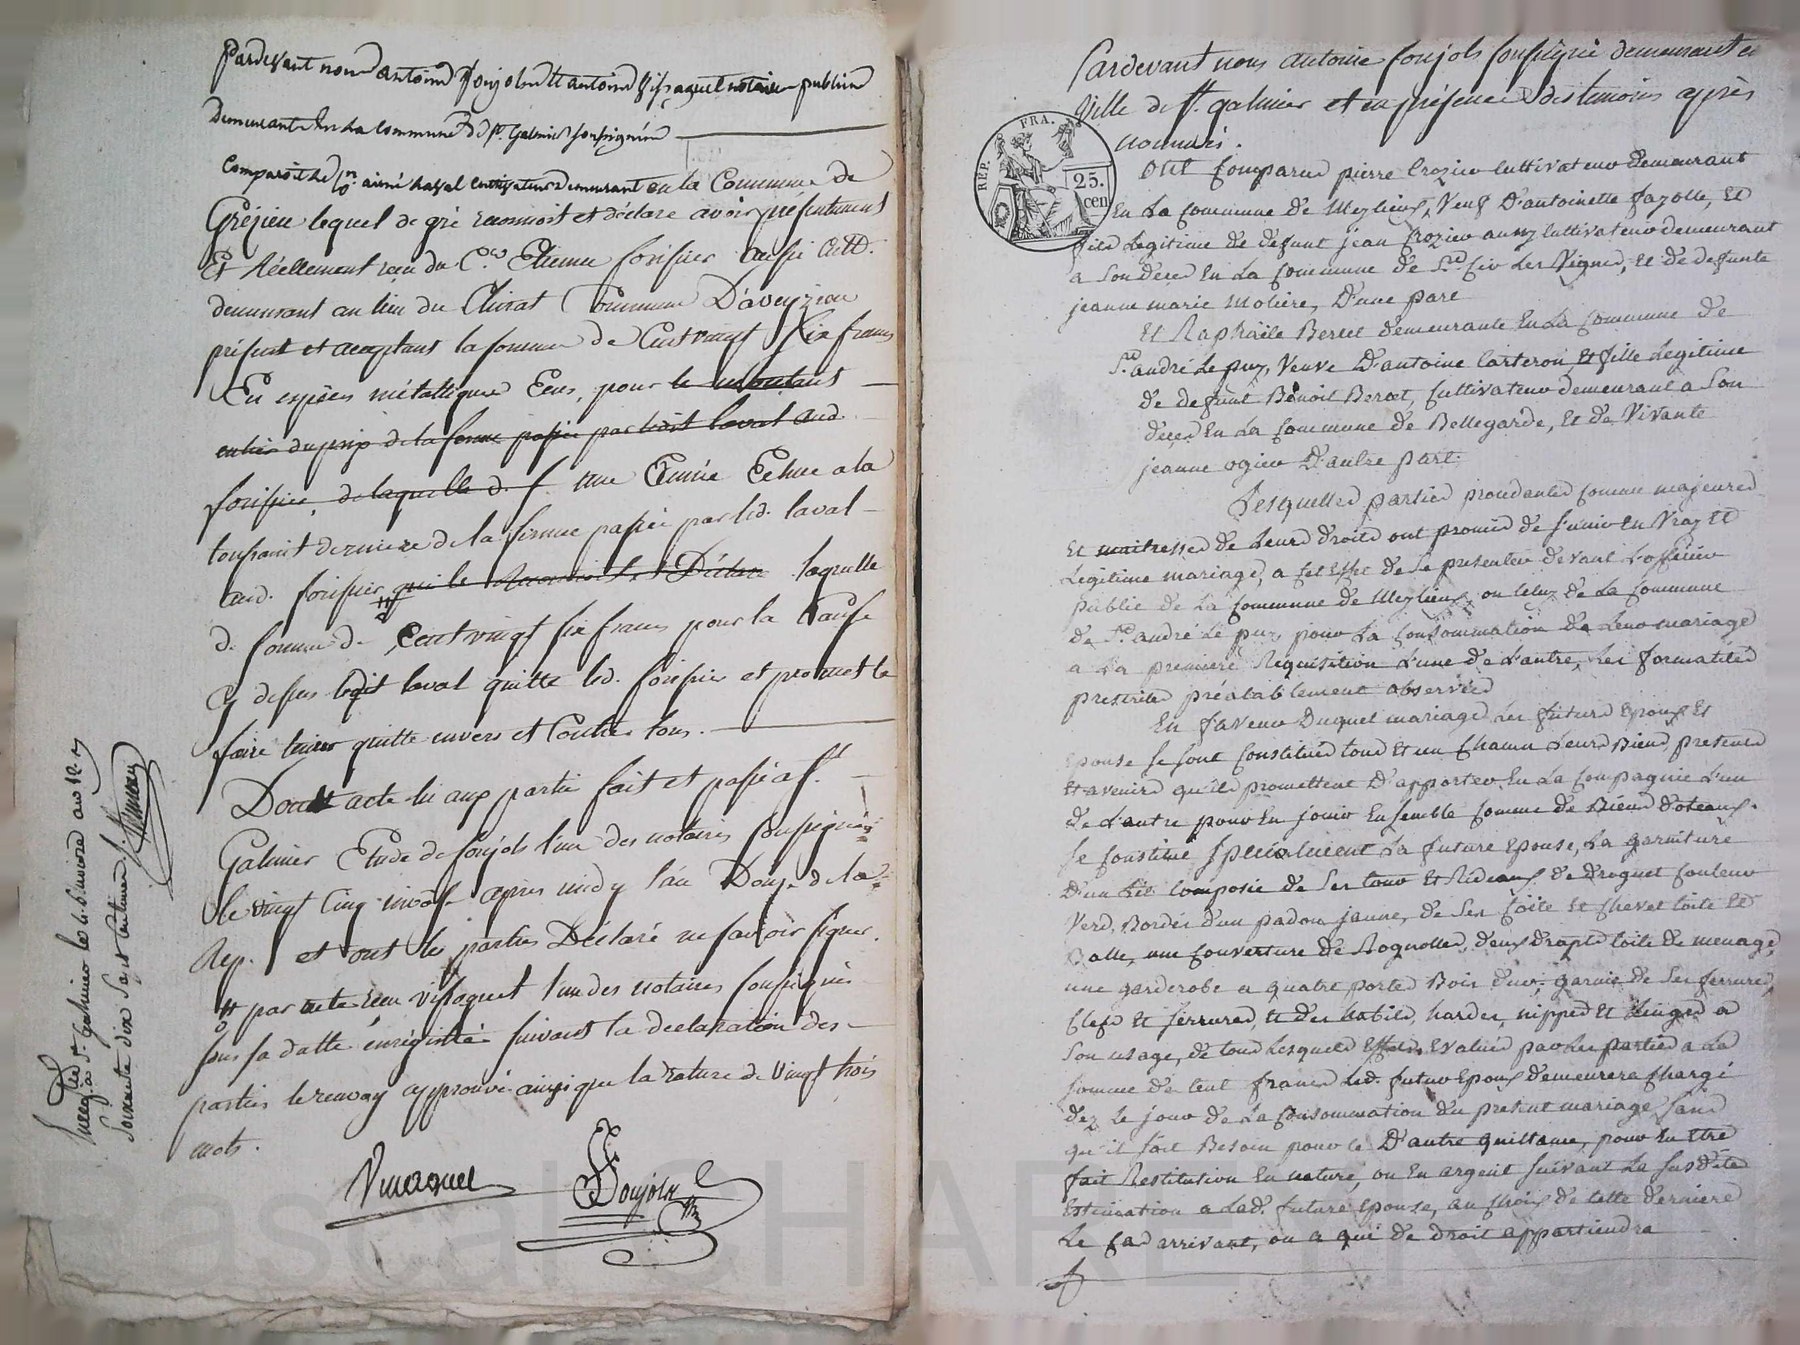 Pardevant nous antoine foujols et antoine vissaguet notaires publics
Demeurants En La Commune de St. Galmier soussignés
Comparoit le Cn. aimé Laval Cultivateur Demeurant en la Commune de
Grézieu lequel de gré reconnoit et déclare avoir présentement
Et Réellement reçu du Cen. Etienne forissier aussi cult.
demeurant au lieu du Chirat Commune D'aveyzieu
présent et acceptant la somme de Cent vingt six francs
En espèces métalliques Ecus, pour le montant
entier du prix de la ferme passée par ledit Laval aud.
forissier, de laquelle d. f. une Année Echue a la
toussaint derniere de la ferme passée par led. laval
aud. forissier qui le Reconnoit et Déclare laquelle
d. somme de Cent vingt six francs pour la Cause
Cy dessus ledit laval quitte led. forissier et promet le
faire tenir quitte envers et Contre tous.
Dont acte lu aux parties fait et passé a St.
Galmier Etude de foujols l'un des notaires soussignés
le vingt Cinq nivôse après midy l'an Douze de la
Rep. et ont les parties Déclaré ne savoir signer.
# par acte reçu vissaguet l'un des notaires soussignés
sous sa datte enrégistré suivant la déclaration des
parties le renvoy approuvé ainsi que la rature de vingt trois
mots.
Vissaguet Foujols
Enregistré a St. Galmier le nivose an 12
Soixante dix Sept centimes
Pardevant nous antoine foujols soussigné demeurant en
Ville de St. galmier et en présence des temoins après
nommés.
RÉP. FRA.
25.
cen
Ont Comparus pierre Crozier Cultivateur demeurant
En La Commune de Meylieux, Veuf D'antoinette fayolle, Et
fils Legitime de defunt jean Crozier aussy Cultivateur demeurant
a Son décès En La Commune de St. Cir Les Vignes, Et de defunte
jeanne marie Moliere, D'une part
Et Raphaële Bercet demeurante En La Commune de
St. andré Le puy, Veuve D'antoine Carteron, Et fille Legitime
de defunt Benoit Bercet, Cultivateur demeurant a Son
décès En La Commune de Bellegarde, Et de Vivante
jeanne ogier D'autre part.
Lesquelles parties procedantes Comme majeures
Et maitresses de Leurs droits ont promis de s'unir En Vray Et
Legitime mariage, a Cet Effet de Se presenter devant L'officier
public de La Commune de Meylieux, ou Celuy de La Commune
de St. andré Le puy pour La Consommation de Leur mariage
a La premiere Réquisition L'une de L'autre, Les formalités
prescrites préalablement observées
En faveur Duquel mariage Les futurs Epoux Et
Epouse Se Sont Constitués tous Et un Chacun Leurs Biens presents
Et avenirs qu'ils promettent D'apporter En La Compagnie L'un
de L'autre pour En jouir Ensemble Comme de Biens Doteaux.
Se Constitue Specialement La future Epouse, La garniture
D'un Lit Composée de Ses tour Et Rideaux de Droguet Couleur
Verd, Bordés d'un padou jaune, de Ses Coite Et Chevet toile Et
Balle, une Couverture de Rognolles, deux draps toile de menage,
une garderobe a quatre portes Bois dur, garnie de Ses ferrures,
Clefs Et serrures, Et des habits, hardes, nippes Et Linges a
Son usage, de tous Lesquels Effets Evalués par Les parties a La
Somme de Cent francs Led. futur Epoux demeurera Chargé
dez Le jour de La Consommation du present mariage, sans
qu'il soit Besoin pour Ce D'autre quittance, pour En Etre
fait Restitution En nature, ou En argent suivant La susdite
Estimation a Lad. future Epouse, au Choix de Cette derniere
Le Cas arrivant, ou a qui de droit appartiendra